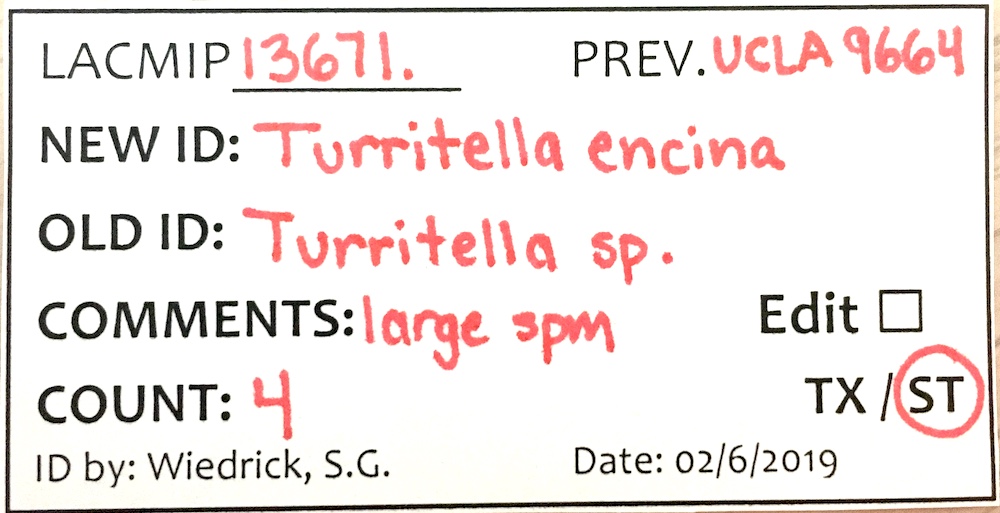 LACMIP 13671. PREV. UCLA 9664
NEW ID: Turritella encina
OLD ID: Turritella sp.
COMMENTS: large spm Edit
COUNT: 4 TX / ST
ID by: Wiedrick, S.G. Date: 02/6/2019